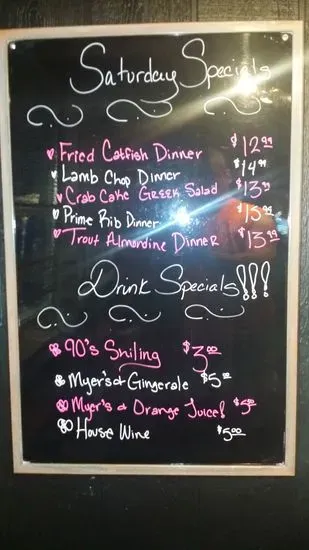 Saturday Specials
Fried Catfish Dinner $12.99
Lamb Chop Dinner $14.99
Crab Cake Greek Salad $13.99
Prime Rib Dinner $15.99
Trout Almondine Dinner $13.99
Drink Specials!!!
90's Smiling $3.00
Myer's & Gingerale $5.00
Myer's & Orange Juice! $5.00
House Wine $5.00